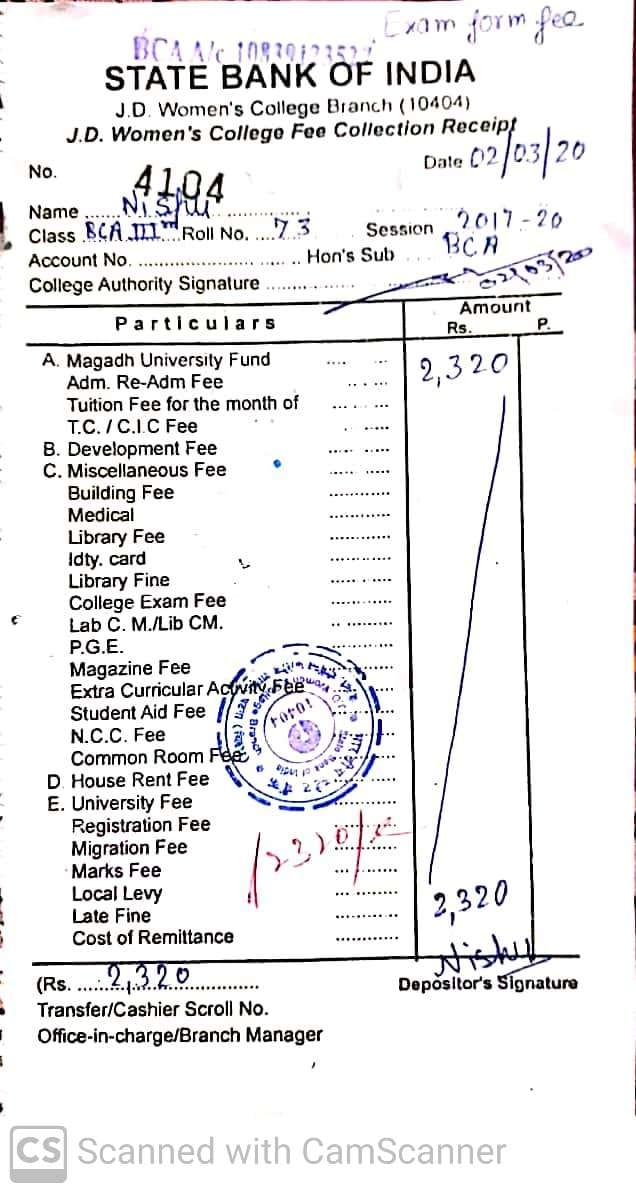 Exam form fee
BCA A/c
STATE BANK OF INDIA
J.D. Women's College Branch (10404)
J.D. Women's College Fee Collection Receipt
No. 4104 Date 02/03/20
Name ...... Nishu ..................
Class BCA III Roll No. .... 73 Session 2017-20
Account No. ............................ Hon's Sub BCA
College Authority Signature .............. 02/03/20
Particulars Amount
Rs. P.
A. Magadh University Fund 2,320
Adm. Re-Adm Fee
Tuition Fee for the month of
T.C. / C.I.C Fee
B. Development Fee
C. Miscellaneous Fee
Building Fee
Medical
Library Fee
Idty. card
Library Fine
College Exam Fee
Lab C. M./Lib CM.
P.G.E.
Magazine Fee
Extra Curricular Activity Fee
Student Aid Fee
N.C.C. Fee
Common Room Fee
D. House Rent Fee
E. University Fee
Registration Fee
Migration Fee
Marks Fee
Local Levy 2,320
Late Fine
Cost of Remittance
2320/-
Nishu
(Rs. ..... 2,320 ............... Depositor's Signature
Transfer/Cashier Scroll No.
Office-in-charge/Branch Manager
CS Scanned with CamScanner